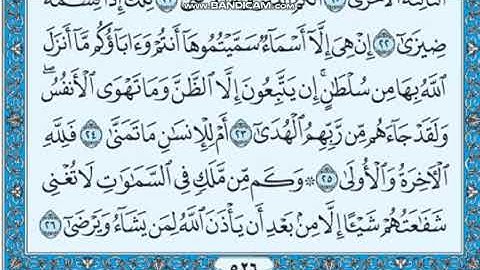 WWW.BANDICAM.COM
ضِيزَىٰٓ ٢٢ إِنْ هِىَ إِلَّآ أَسْمَآءٌ سَمَّيْتُمُوهَآ أَنتُمْ وَءَابَآؤُكُم مَّآ أَنزَلَ
ٱللَّهُ بِهَا مِن سُلْطَٰنٍ ۚ إِن يَتَّبِعُونَ إِلَّا ٱلظَّنَّ وَمَا تَهْوَى ٱلْأَنفُسُ ۖ
وَلَقَدْ جَآءَهُم مِّن رَّبِّهِمُ ٱلْهُدَىٰٓ ٢٣ أَمْ لِلْإِنسَٰنِ مَا تَمَنَّىٰ ٢٤ فَلِلَّهِ
ٱلْءَاخِرَةُ وَٱلْأُولَىٰ ٢٥ ۞ وَكَم مِّن مَّلَكٍ فِى ٱلسَّمَٰوَٰتِ لَا تُغْنِى
شَفَٰعَتُهُمْ شَيْـًٔا إِلَّا مِنۢ بَعْدِ أَن يَأْذَنَ ٱللَّهُ لِمَن يَشَآءُ وَيَرْضَىٰٓ ٢٦
٥٢٦